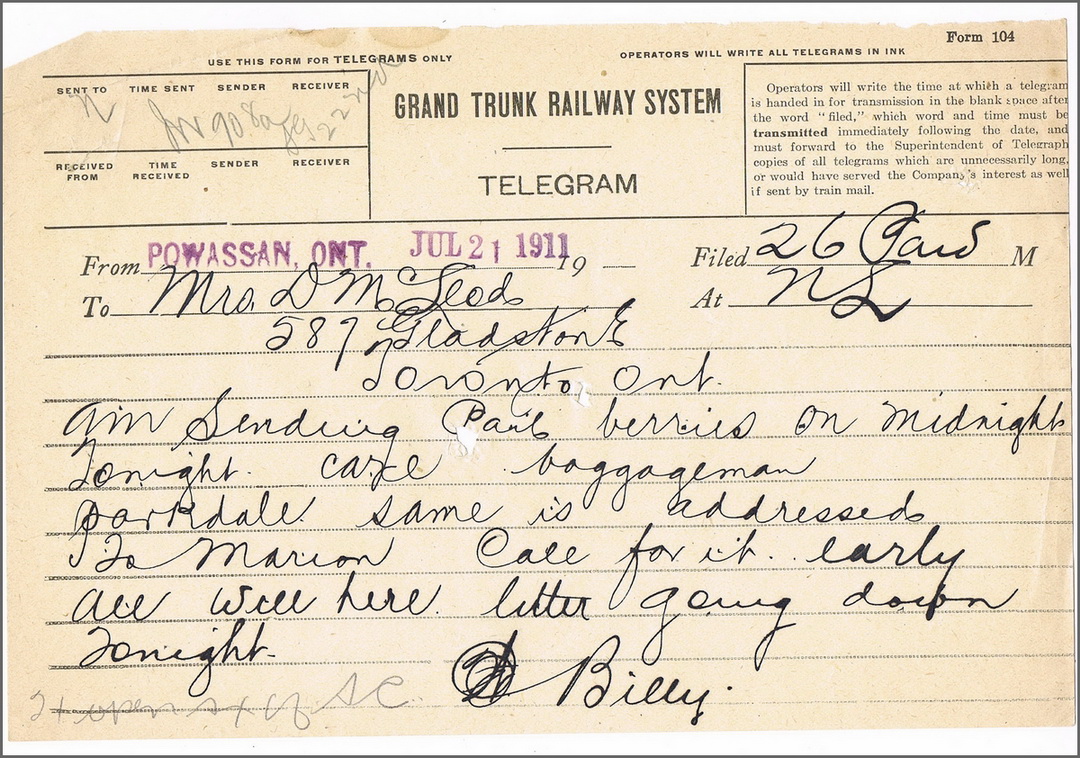 Form 104
USE THIS FORM FOR TELEGRAMS ONLY
OPERATORS WILL WRITE ALL TELEGRAMS IN INK
SENT TO TIME SENT SENDER RECEIVER
RECEIVED FROM TIME RECEIVED SENDER RECEIVER
GRAND TRUNK RAILWAY SYSTEM
TELEGRAM
Operators will write the time at which a telegram
is handed in for transmission in the blank space after
the word "filed," which word and time must be
transmitted immediately following the date, and
must forward to the Superintendent of Telegraph
copies of all telegrams which are unnecessarily long,
or would have served the Company's interest as well
if sent by train mail.
From POWASSAN, ONT. JUL 21 1911 19
Filed 26 Paid M
To Mrs. D McLeod
At NL
587 Gladstone
Toronto Ont.
Am Sending Pail berries on Midnight
Tonight. care baggageman
parkdale. same is addressed
To Marion Call for it. early
all well here. letter going down
Tonight.
Billy.